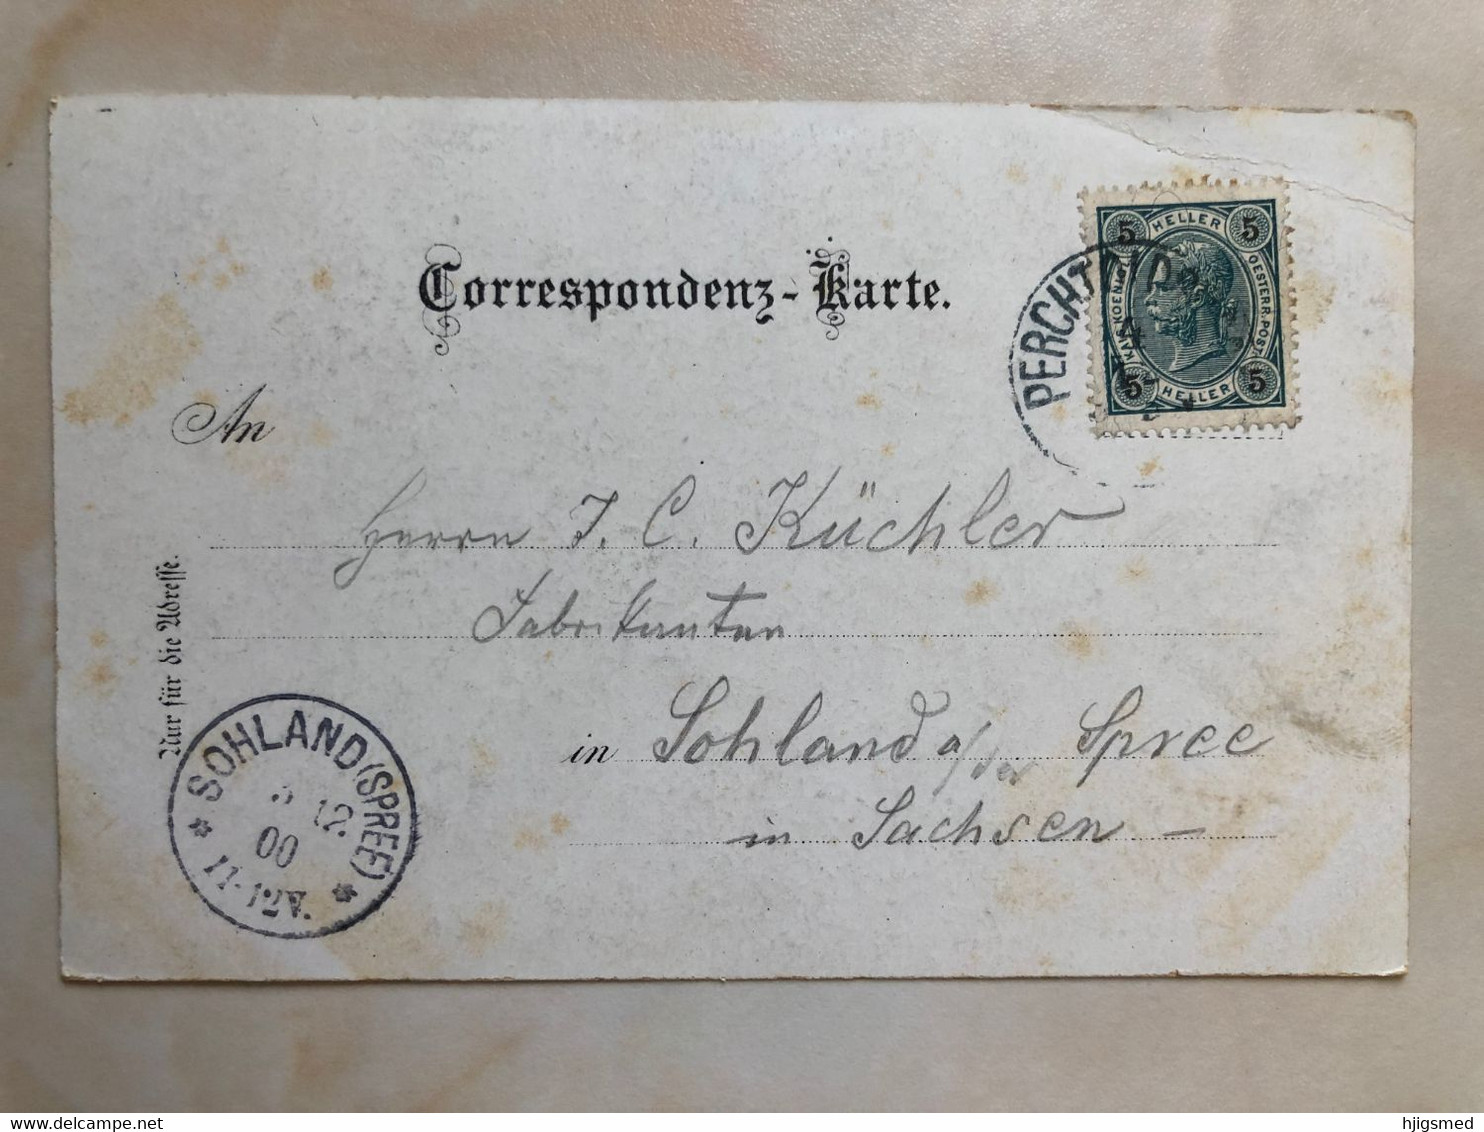 Correspondenz-Karte.
HELLER
5 5
KAIS. KOENIGL. OESTERR. POST
5 5
HELLER
PERCHT
4
An
Herrn J. C. Küchler
Fabrikanten
in Sohland a/der Spree
in Sachsen
Nur für die Adresse.
SOHLAND (SPREE)
12
00
11-12V.
www.delcampe.net
hjlgsmed